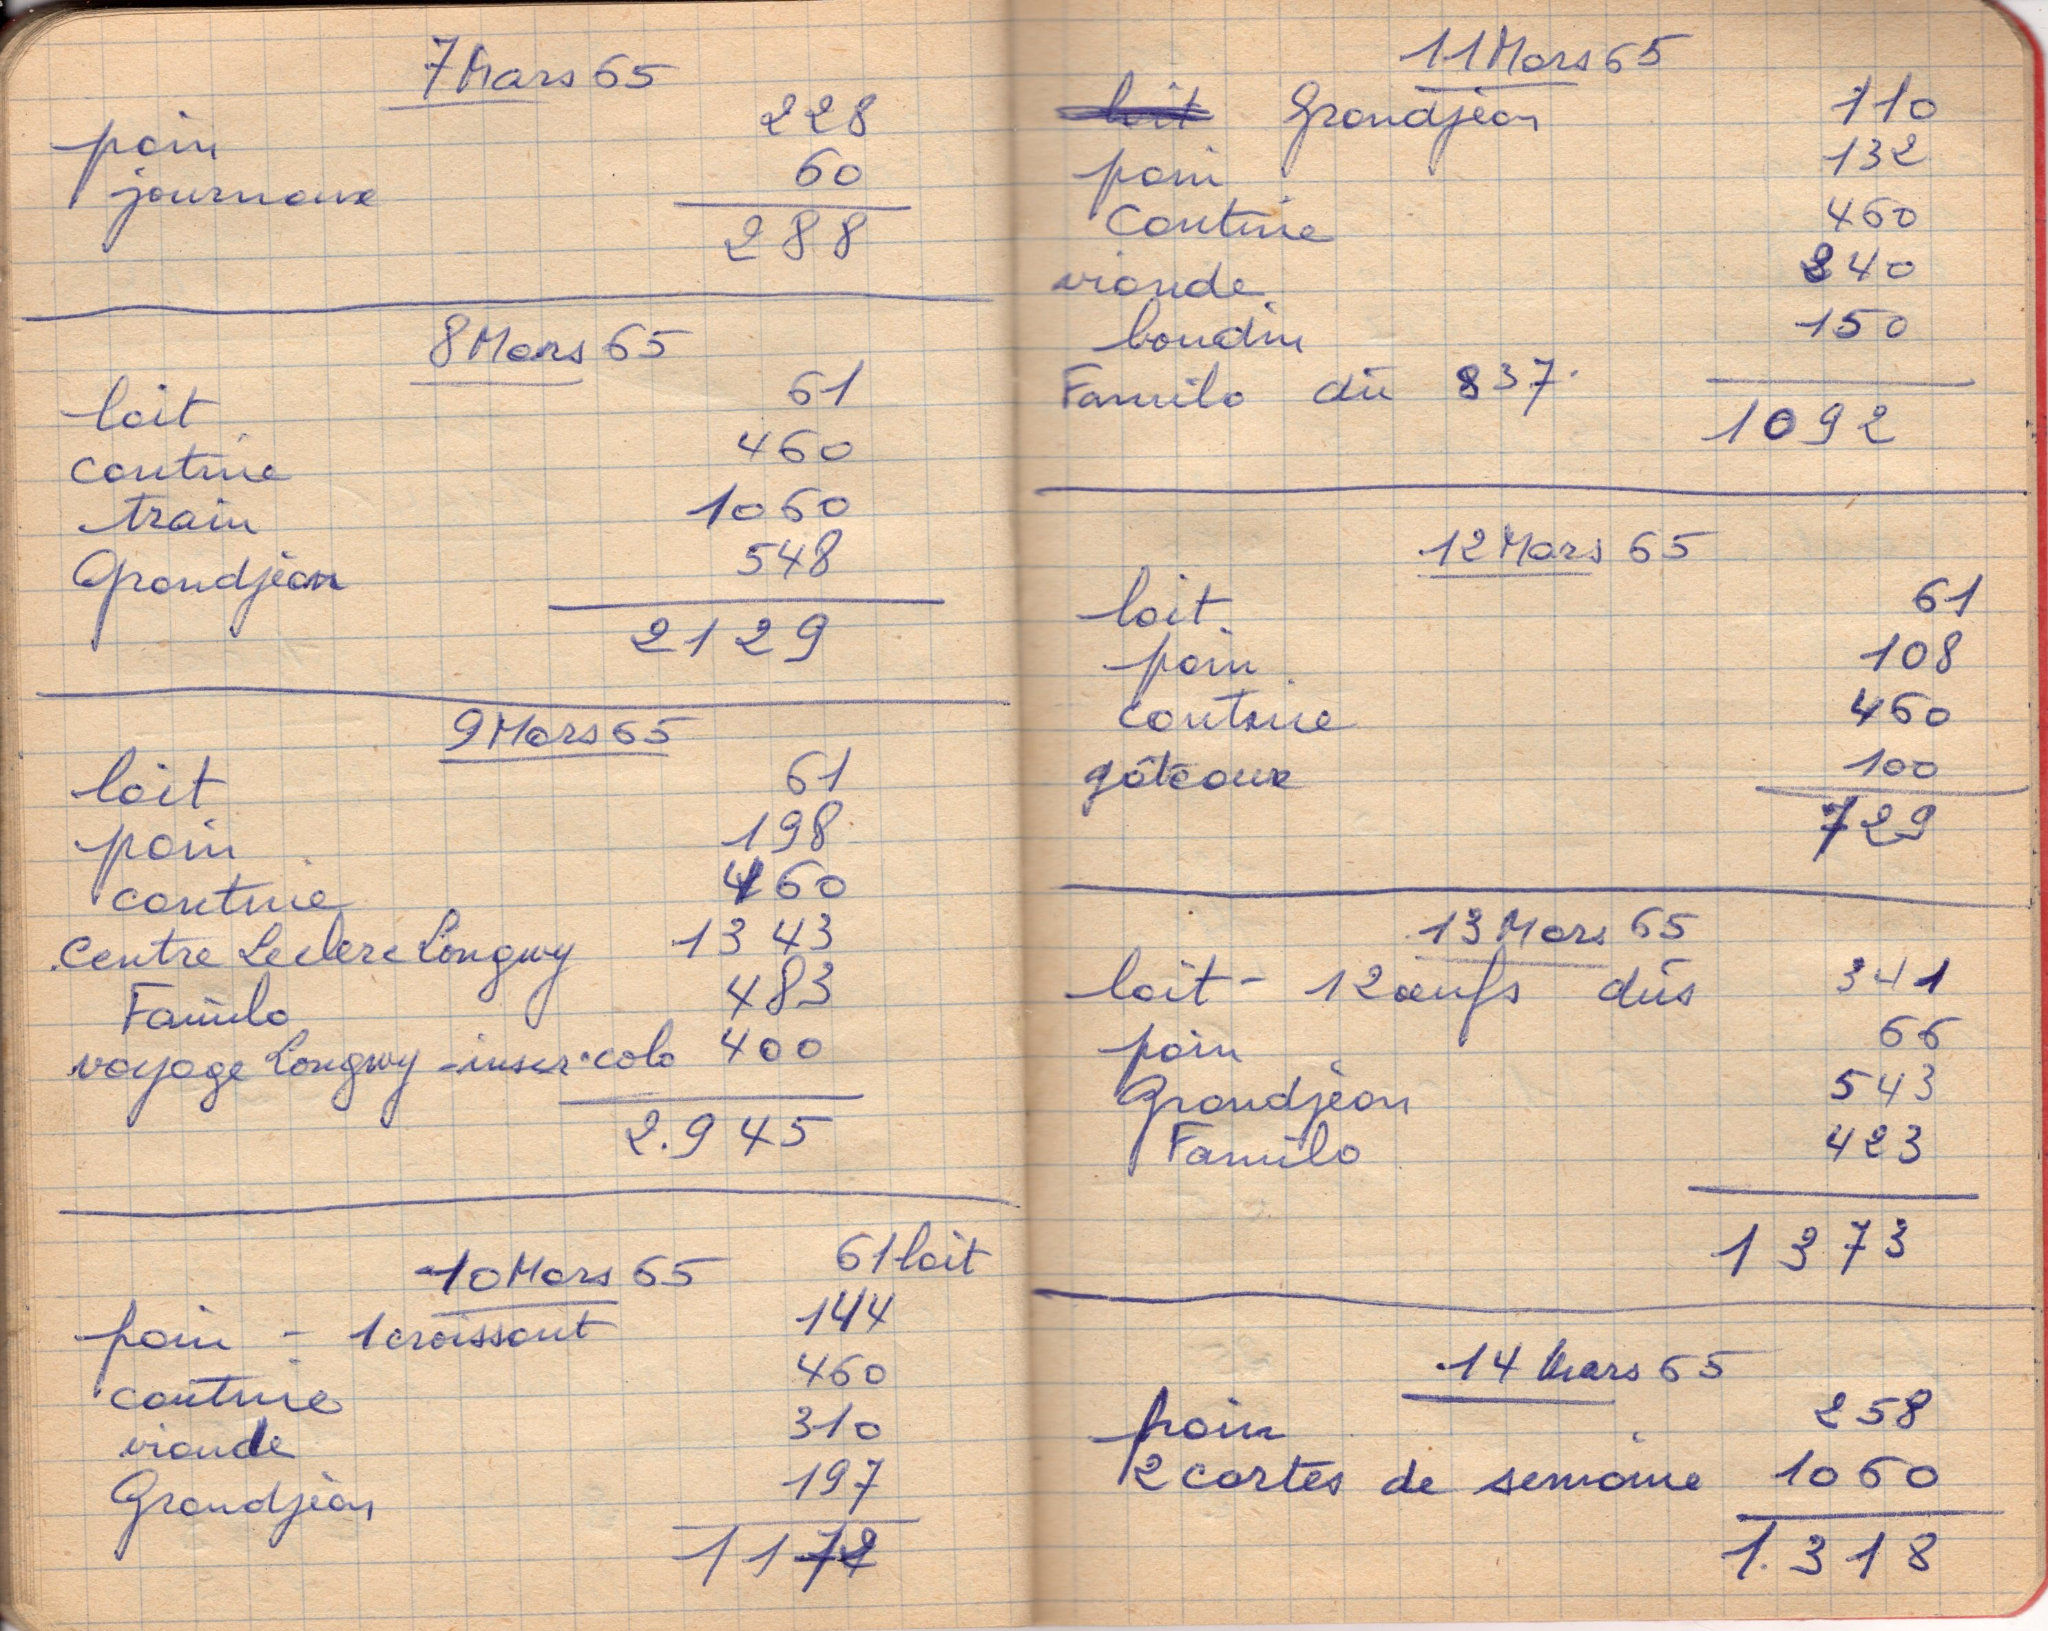 7 Mars 65
pain 228
journaux 60
288
8 Mars 65
lait 61
cantine 460
train 1060
Grandjean 548
2129
9 Mars 65
lait 61
pain 198
cantine 460
Centre Leclerc Longwy 1343
Familo 483
voyage Longwy - inscr. colo 400
2.945
10 Mars 65 61 lait
pain - 1 croissant 144
cantine 460
viande 310
Grandjean 197
1172
11 Mars 65
lait Grandjean 110
pain 132
Cantine 460
viande 240
boudin 150
Familo dû 837
1092
12 Mars 65
lait 61
pain 108
cantine 460
gâteaux 100
729
13 Mars 65
lait - 12 œufs dûs 341
pain 66
Grandjean 543
Familo 423
1373
14 Mars 65
pain 258
2 cartes de semaine 1060
1.318